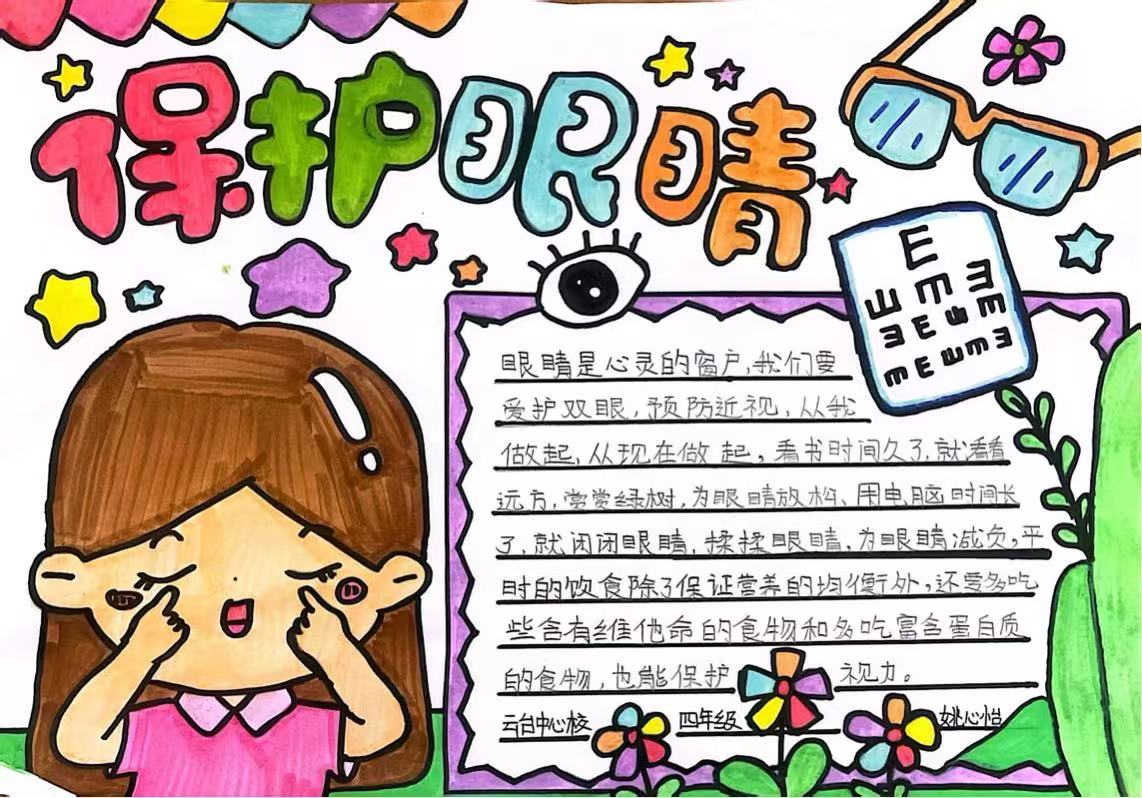 保护眼睛
E
E M E
M E W E
M E W E M
眼睛是心灵的窗户,我们要
爱护双眼,预防近视,从我
做起,从现在做起,看书时间久了,就看看
远方,赏赏绿树,为眼睛放松、用电脑时间长
了,就闭闭眼睛,揉揉眼睛,为眼睛减负,平
时的饮食除了保证营养的均衡外,还要多吃
些含有维他命的食物和多吃富含蛋白质
的食物,也能保护视力。
云台中心校 四年级 姚心恺